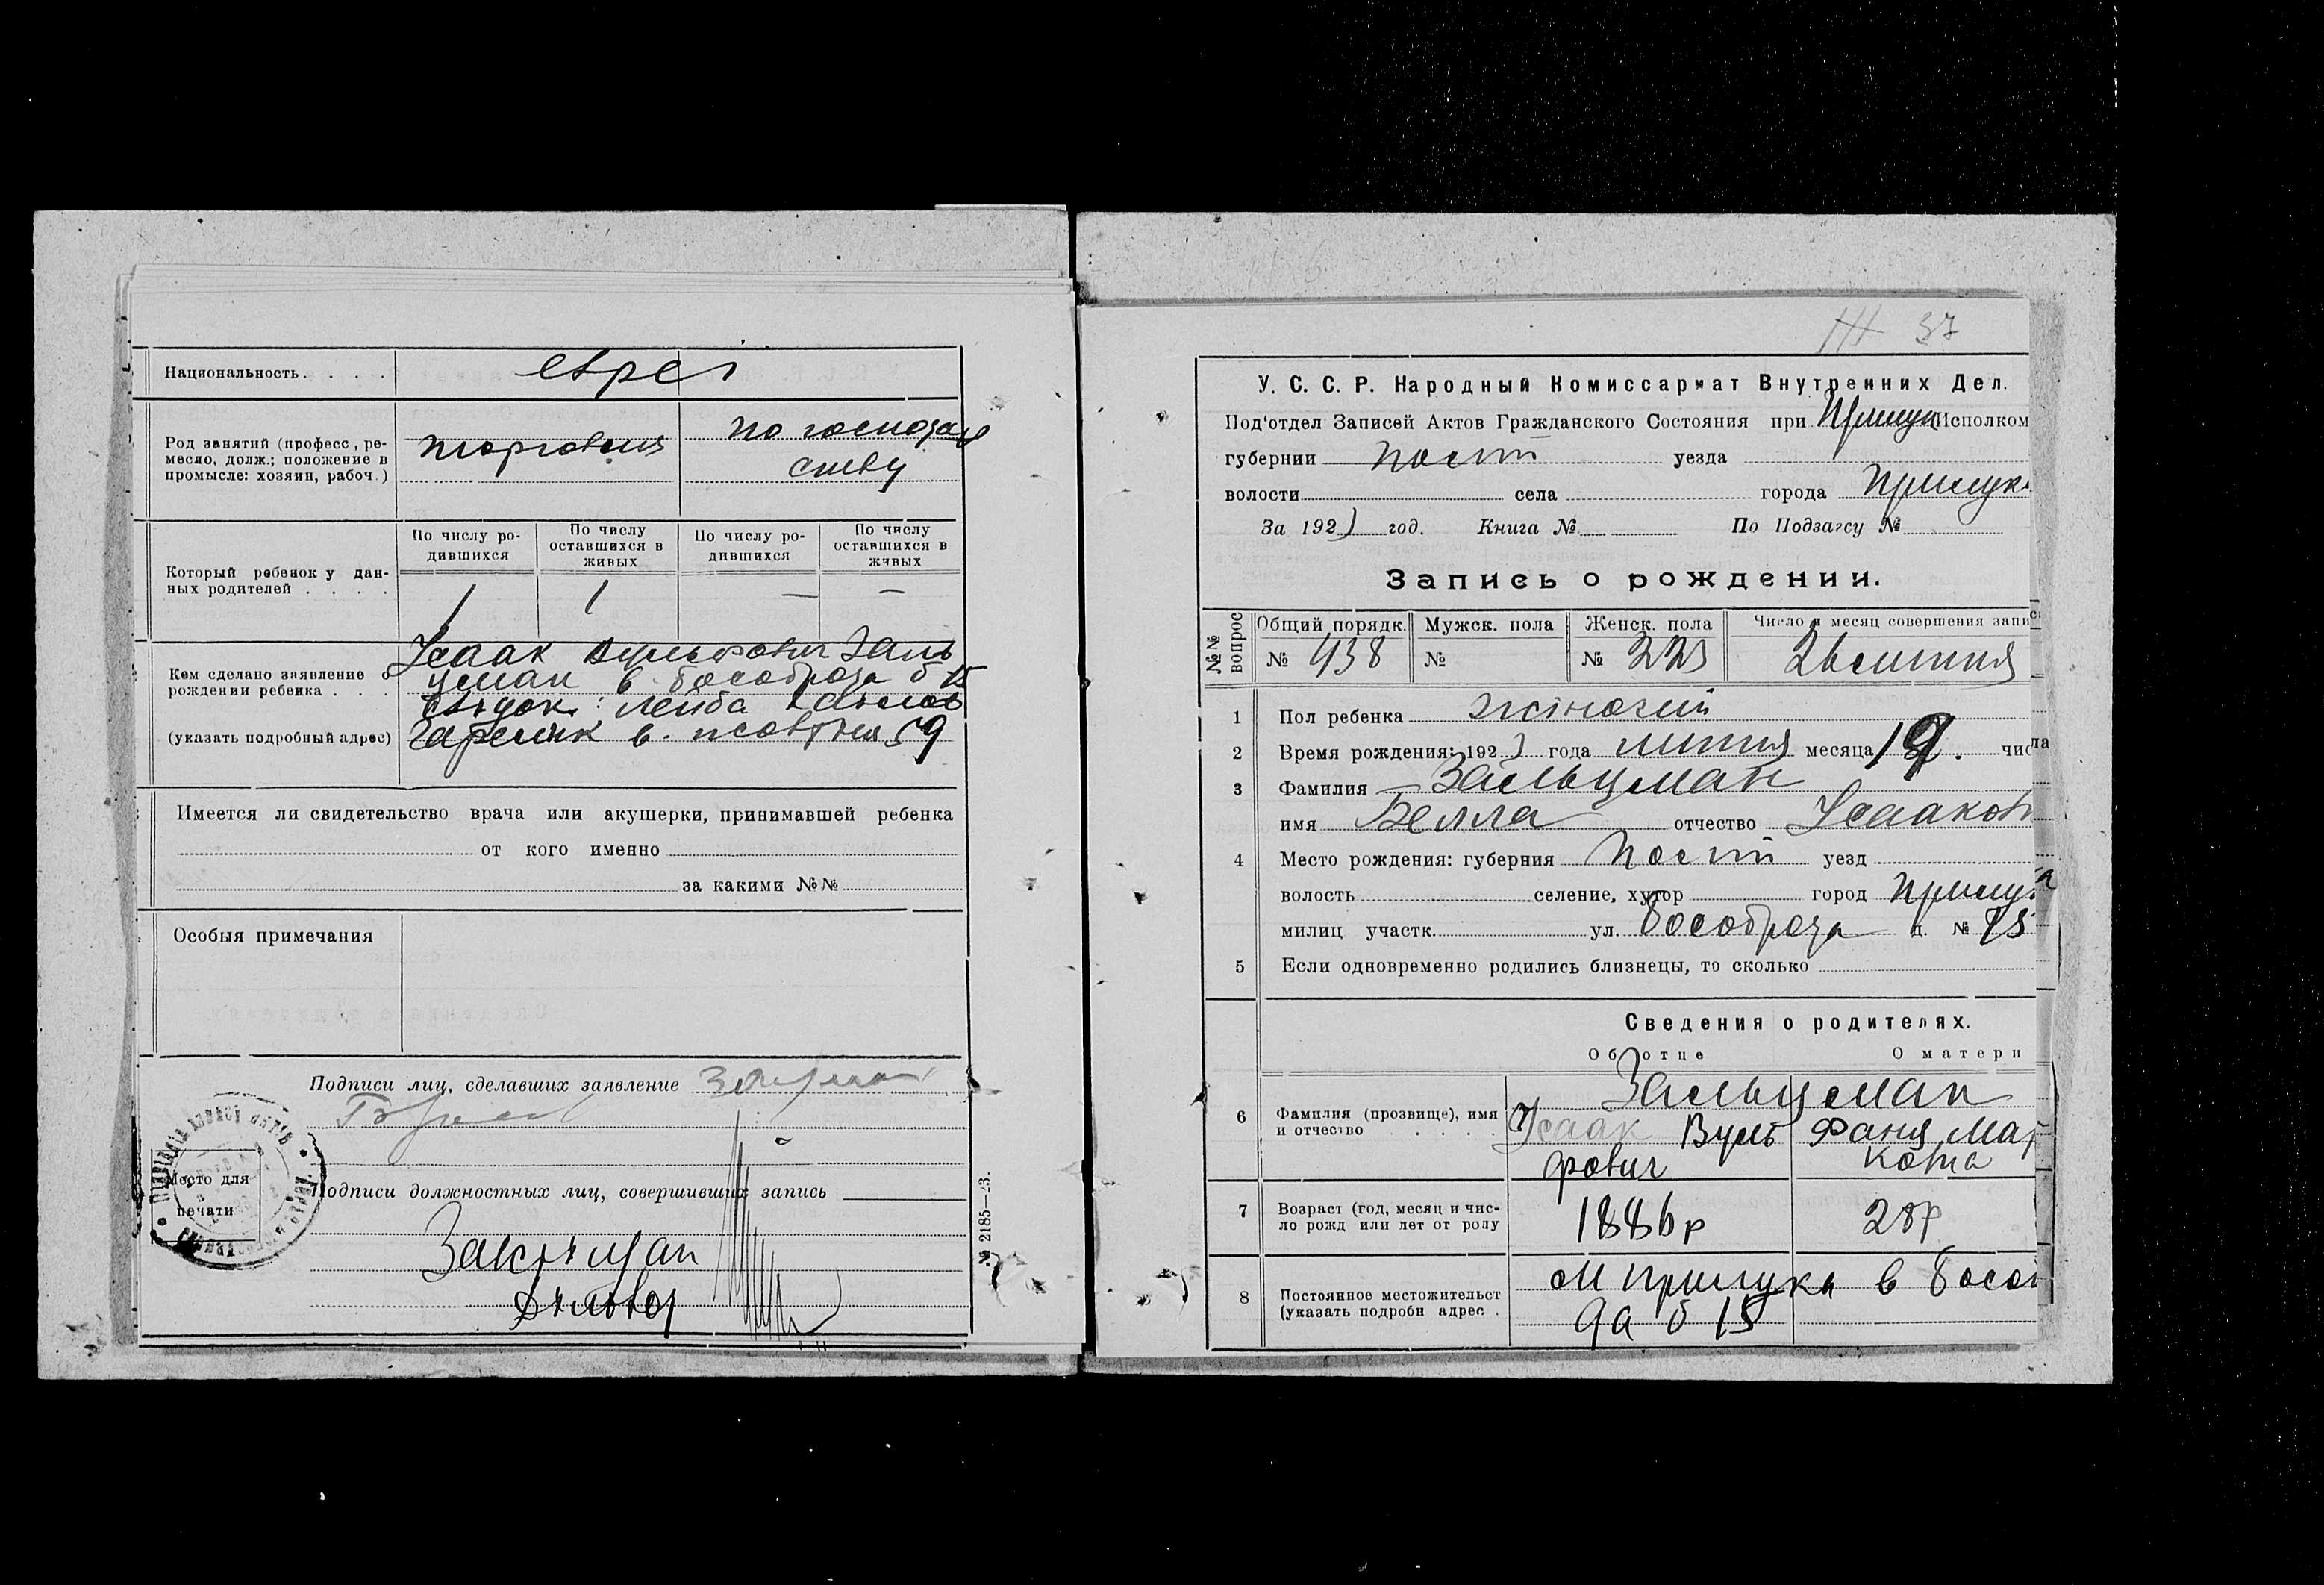 Национальность. . . . .
евреі
Род занятий (професс, ре-
месло, долж.; положение в
промысле: хозяин, рабоч.)
торговля
по господар
ству
Который ребенок у дан-
ных родителей . . . .
По числу ро-
дившихся
По числу
оставшихся в
живых
По числу ро-
дившихся
По числу
оставшихся в
живых
1 1 — —
Кем сделано заявление о
рождении ребенка . . .
(указать подробный адрес)
Ісаак Вульфович Заль
цман в. б 15
свідок: Лейба
Гарелик в. жовтня 59
Имеется ли свидетельство врача или акушерки, принимавшей ребенка
от кого именно
за какими №№
Особыя примечания
Подписи лиц, сделавших заявление
Место для
печати
Подписи должностных лиц, совершивших запись
№ 2185—23.
37
У. С. С. Р. Народный Комиссариат Внутренних Дел.
Под'отдел Записей Актов Гражданского Состояния при Прилук Исполком
губернии Полт уезда
волости села города Прилук
За 192 год. Книга № По Подзагсу №
Запись о рождении.
№№ вопрос
Общий порядк. Мужск. пола Женск. пола Число и месяц совершения запис
№ 438 № № 223 липня
1 Пол ребенка жіночий
2 Время рождения: 192 года липня месяца 19. числа
3 Фамилия Зальцман
имя Белла отчество Ісааков
4 Место рождения: губерния Полт уезд
волость селение, хутор город Прилука
милиц участк. ул. д. № 15
5 Если одновременно родились близнецы, то сколько
Сведения о родителях.
Об отце О матери
6 Фамилия (прозвище), имя
и отчество . . . . .
Зальцман
Ісаак Вуль
фович
Фаня Мар
ковна
7 Возраст (год, месяц и чис-
ло рожд или лет от роду
1886р 28р
8 Постоянное местожительст
(указать подробн адрес .
м Прилука в
да б 15